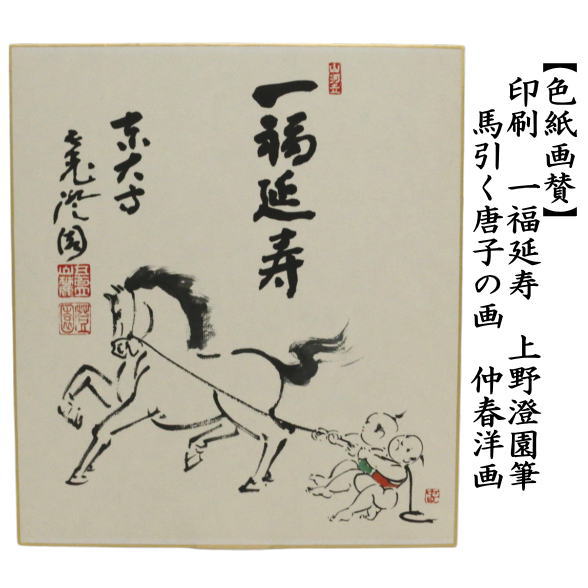 【色紙画賛】
印刷 一福延寿 上野澄園筆
馬引く唐子の画 仲春洋画
一福延寿
東大寺
澄園